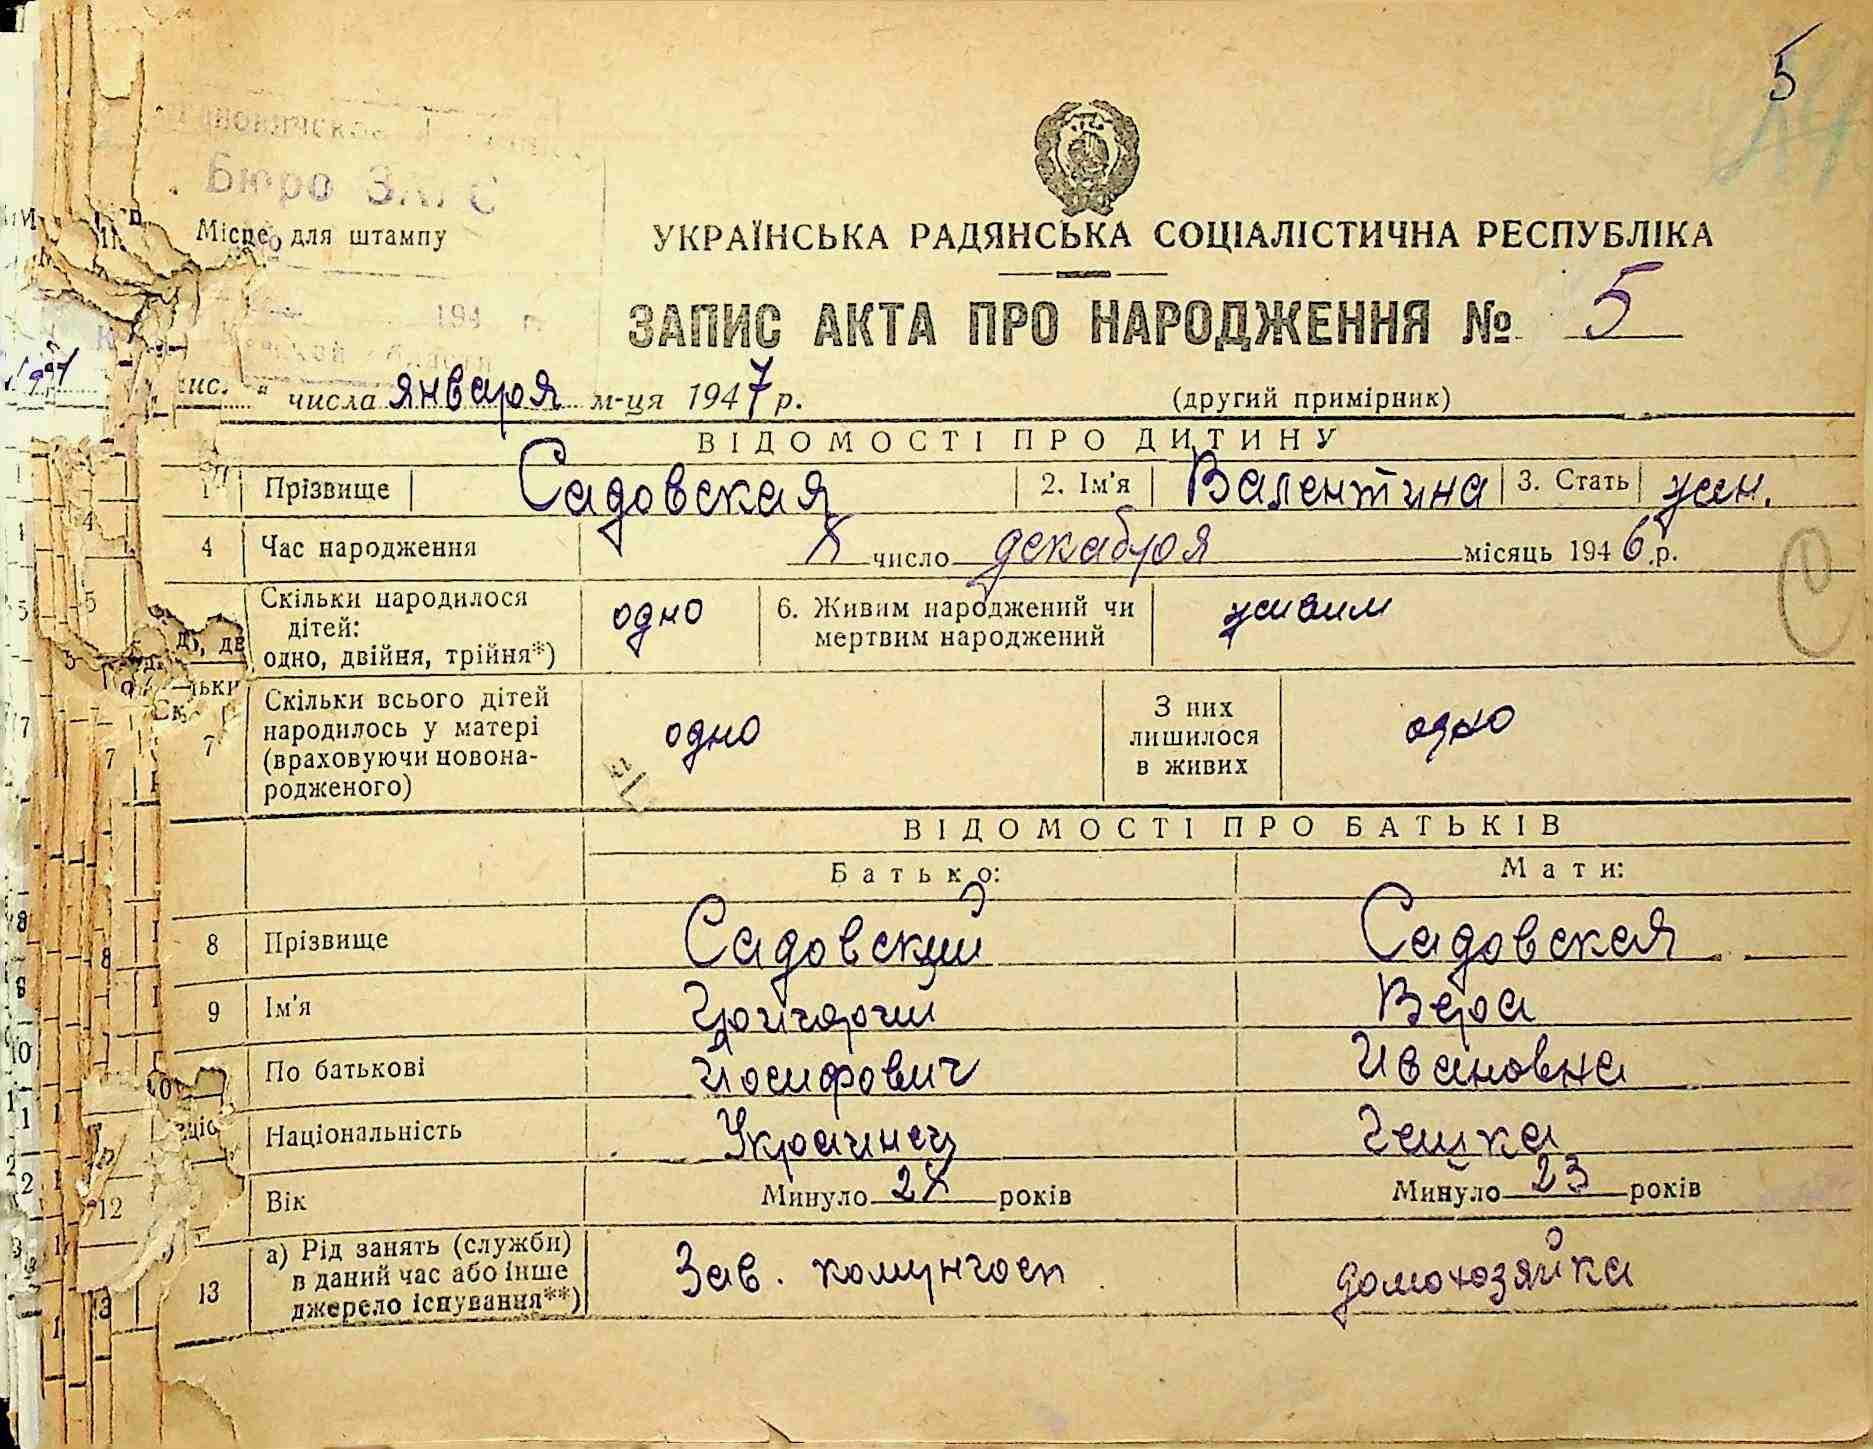 5
Бюро ЗАГС
Місце для штампу
УКРАЇНСЬКА РАДЯНСЬКА СОЦІАЛІСТИЧНА РЕСПУБЛІКА
194 г.
ЗАПИС АКТА ПРО НАРОДЖЕННЯ № 5
числа января м-ця 1947 р.
(другий примірник)
ВІДОМОСТІ ПРО ДИТИНУ
1 Прізвище Садовская 2. Ім'я Валентина 3. Стать жен.
4 Час народження число декабря місяць 1946 р.
5 Скільки народилося дітей: одно, двійня, трійня*) одно 6. Живим народжений чи мертвим народжений живим
7 Скільки всього дітей народилось у матері (враховуючи новонародженого) одно З них лишилося в живих одно
ВІДОМОСТІ ПРО БАТЬКІВ
Батько: Мати:
8 Прізвище Садовский Садовская
9 Ім'я Григорий Вера
По батькові Йосифович Ивановна
Національність Украинец Чешка
12 Вік Минуло років Минуло 23 років
13 а) Рід занять (служби) в даний час або інше джерело існування**) Зав. комунгосп домохозяйка